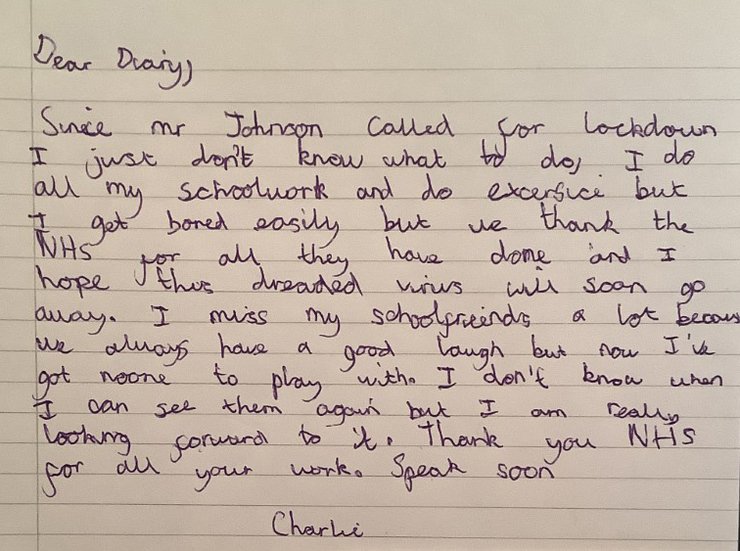 Dear Diary,
Since mr Johnson called for lockdown
I just don't know what to do, I do
all my schoolwork and do excersice but
I get bored easily but we thank the
NHS for all they have done and I
hope this dreaded virus will soon go
away. I miss my schoolfreinds a lot because
we always have a good laugh but now I've
got noone to play with. I don't know when
I can see them again but I am really
looking forward to it. Thank you NHS
for all your work. Speak soon
Charlie